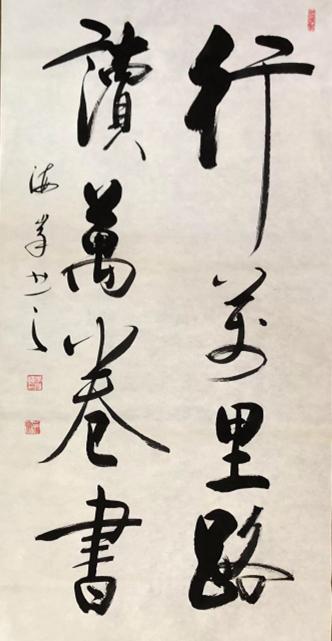 行萬里路
讀萬卷書
海峯书之